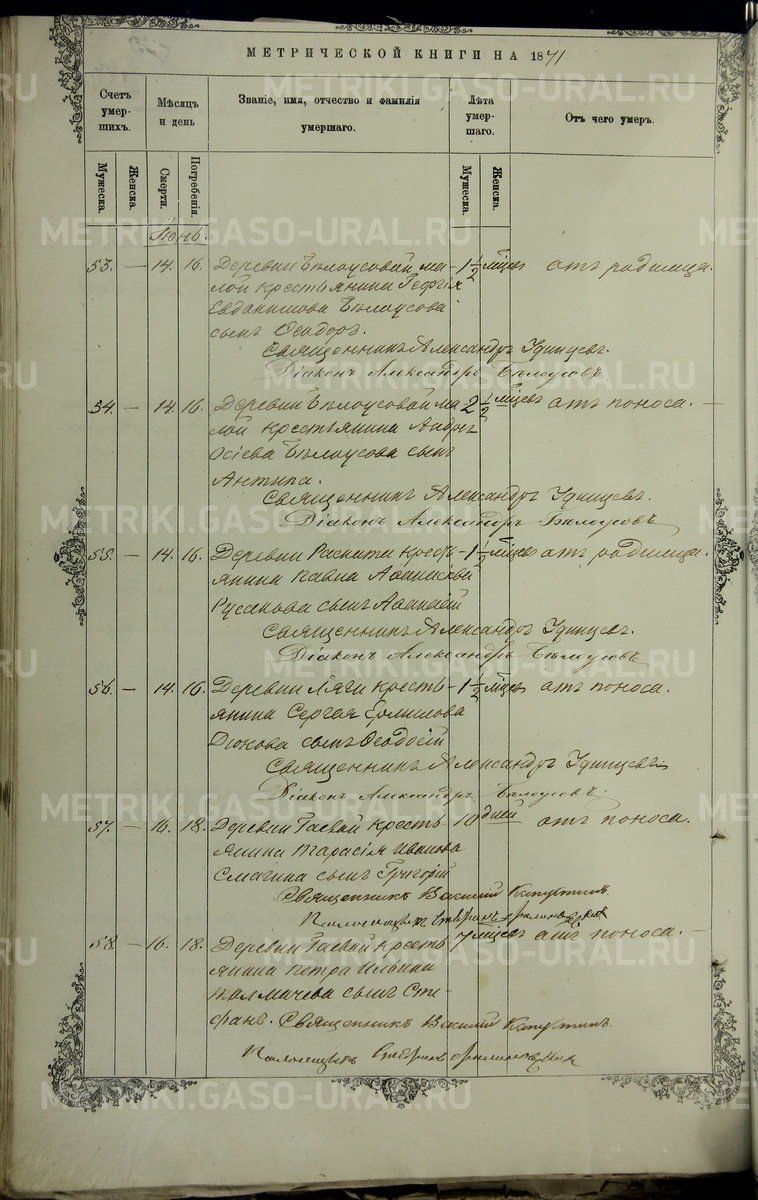 МЕТРИЧЕСКОЙ КНИГИ НА 1871
Счетъ умер- шихъ.
Мѣсяцъ и день
Званіе, имя, отчество и фамилія умершаго.
Лѣта умер- шаго.
Отъ чего умеръ.
Мужеска.
Женска.
Смерти.
Погребенія.
Мужеска.
Женска.
Іюнь.
53. — 14. 16. Деревни Бѣлоусовой ма- 1 1/2 мѣсяц отъ родимца.
лой крестьянина Георгія
Евдокимова Бѣлоусова
сынъ Ѳеодоръ.
Священникъ Александръ Удинцевъ.
Діаконъ Александръ Бѣлоусовъ
54. — 14. 16. Деревни Бѣлоусовой ма- 2 1/2 мѣсяц отъ поноса. —
лой крестьянина Андрея
Осіева Бѣлоусова сынъ
Антипа.
Священникъ Александръ Удинцевъ.
Діаконъ Александръ Бѣлоусовъ
55. — 14. 16. Деревни крестъ- 1 1/2 мѣсяц отъ родимца.
янина Павла
Русакова сынъ Аѳанасій
Священникъ Александръ Удинцевъ.
Діаконъ Александръ Бѣлоусовъ
56. — 14. 16. Деревни Ляги кресть- 1 1/2 мѣсяц отъ поноса.
янина Сергея Ермилова
Дюкова сынъ Ѳеодосій
Священникъ Александръ Удинцевъ
Діаконъ Александръ Бѣлоусовъ.
57. — 16. 18. Деревни Гаевой кресть- 10 дней отъ поноса.
янина Тарасія Иванова
Смагина сынъ Григорій
Священникъ Василій Капустинъ.
58. — 16. 18. Деревни Гаевой кресть- 7 мѣсяц отъ поноса. —
янина Петра Ильина
Толмачева сынъ Сте-
фанъ. Священникъ Василій Капустинъ.
METRIKI.GASO-URAL.RU